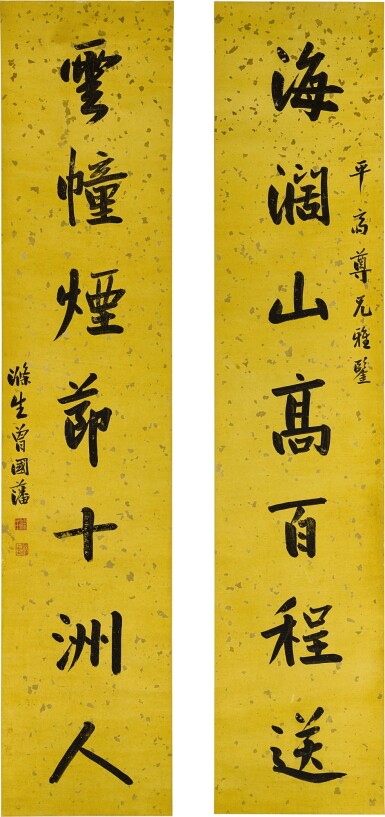 平高尊兄雅鑒
海濶山高百程送
雲幢煙節十洲人
滌生曾國藩